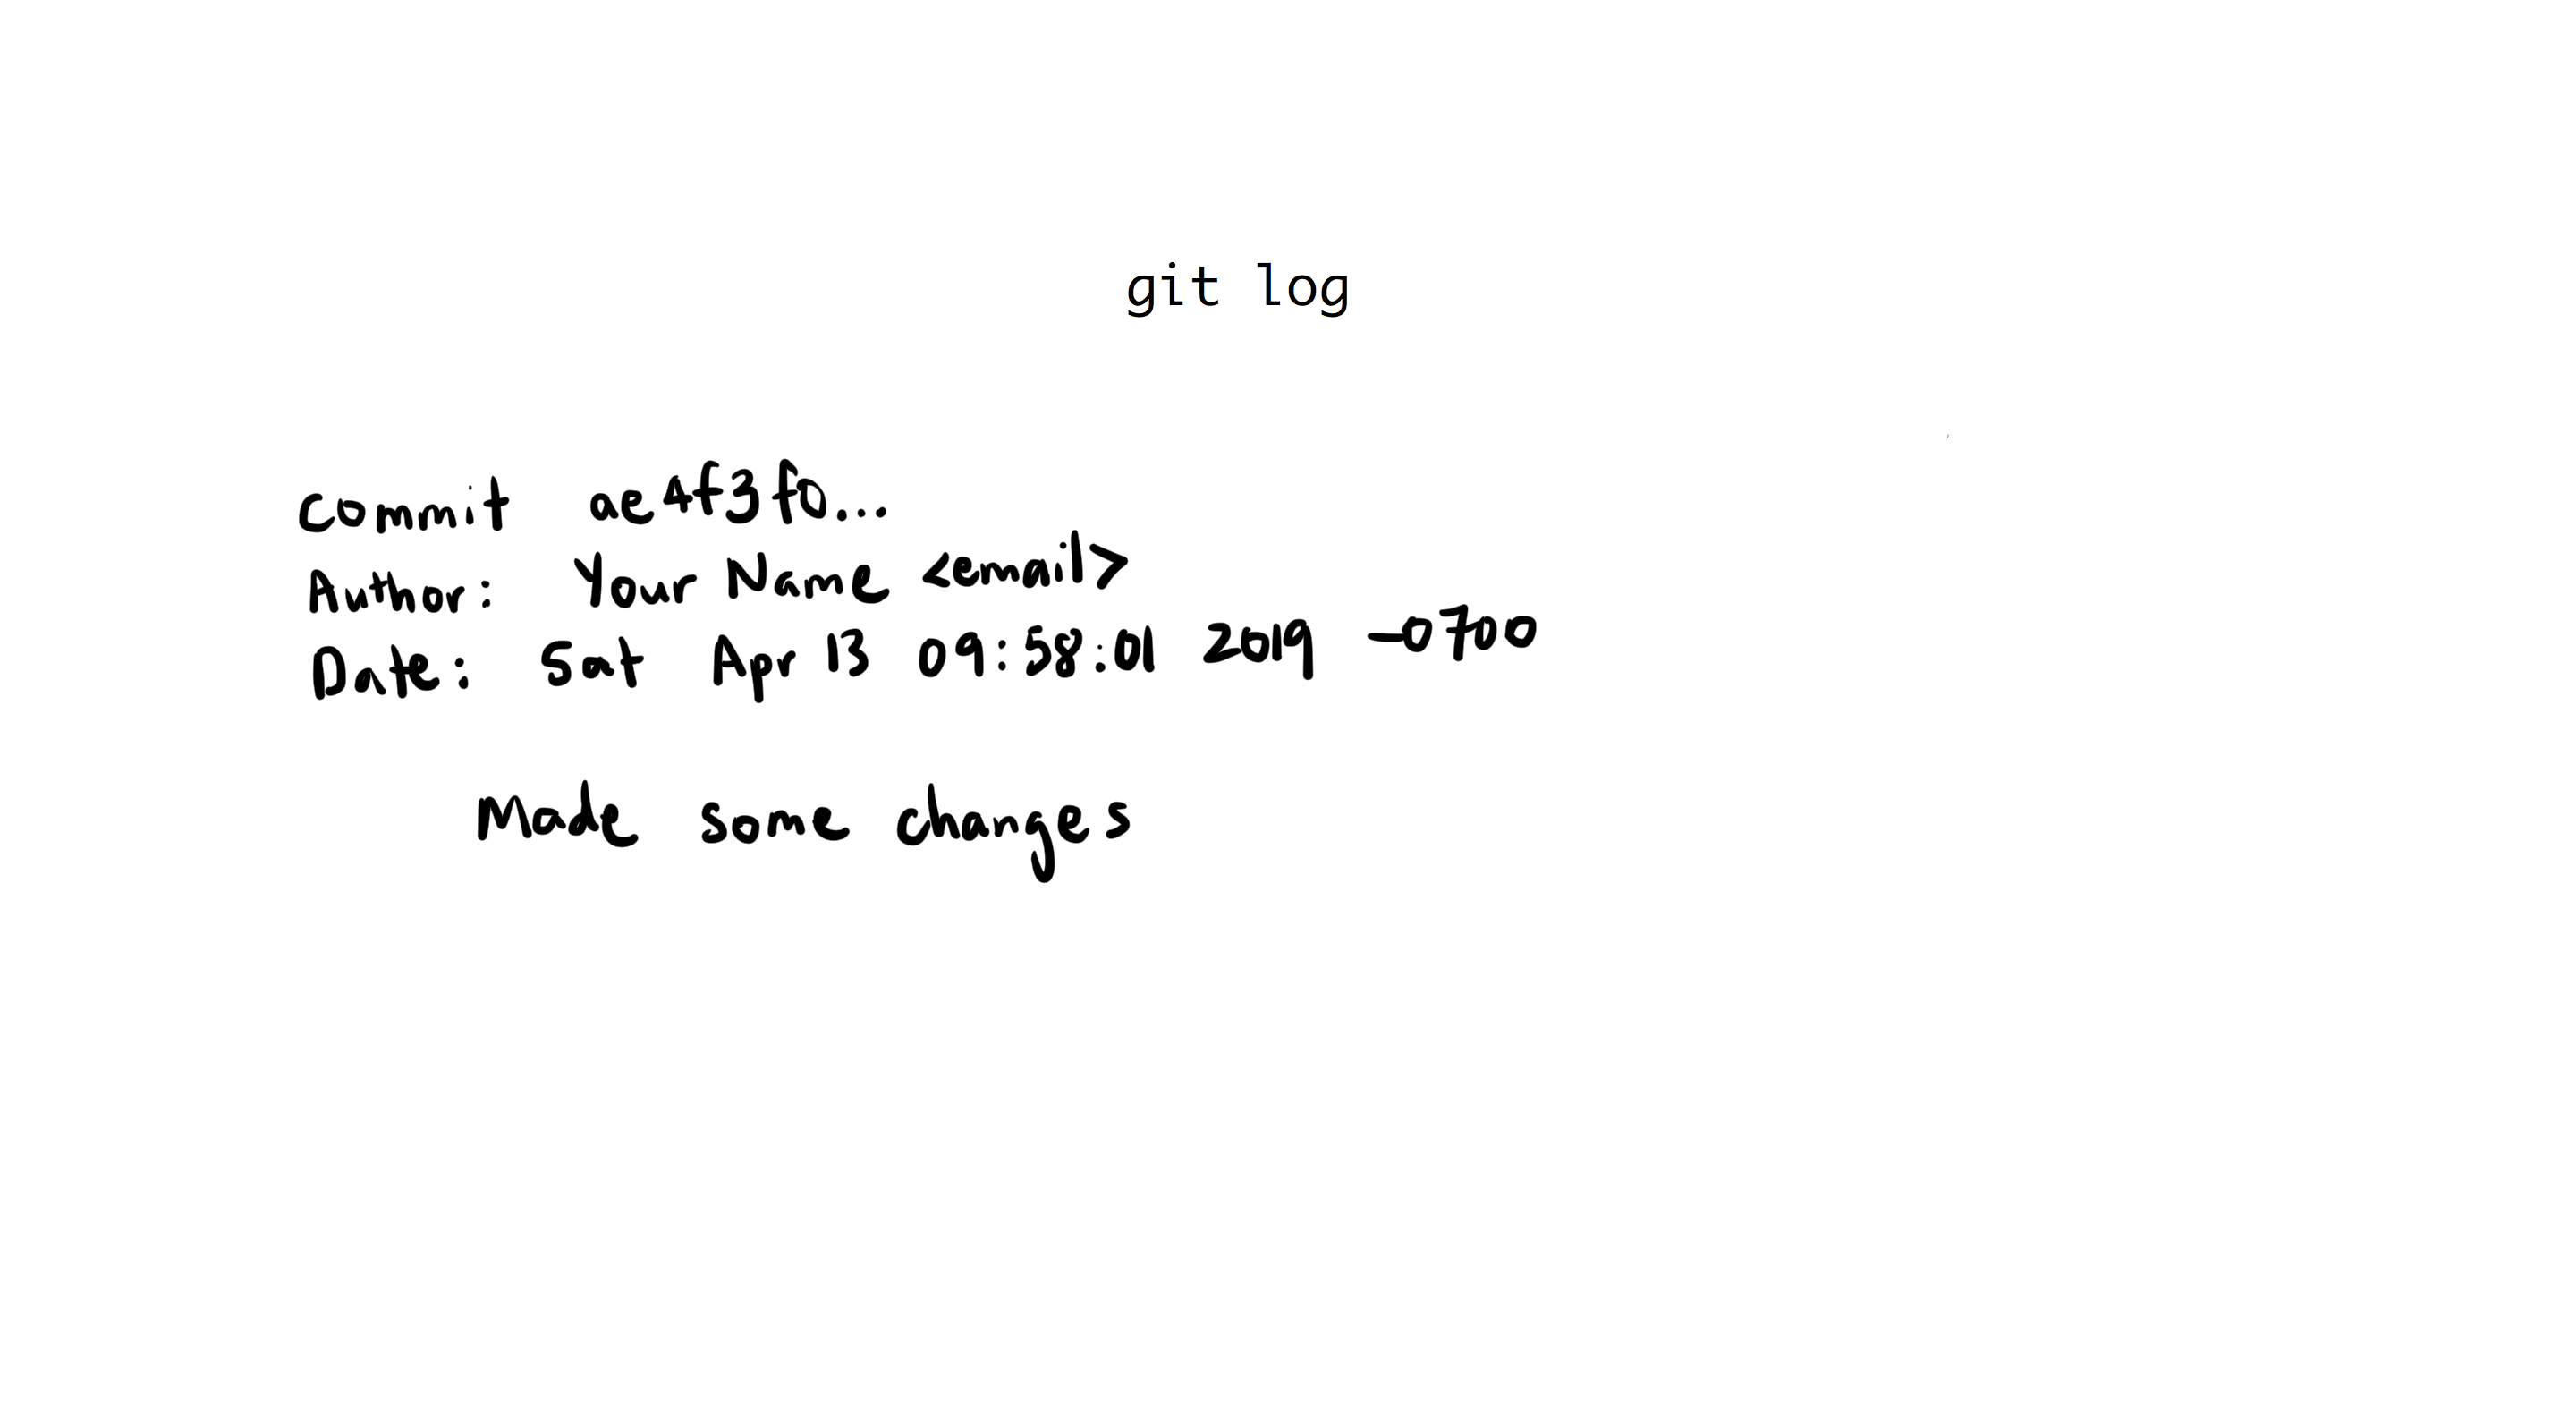 git log
commit ae4f3f0...
Author: Your Name <email>
Date: Sat Apr 13 09:58:01 2019 -0700
Made some changes